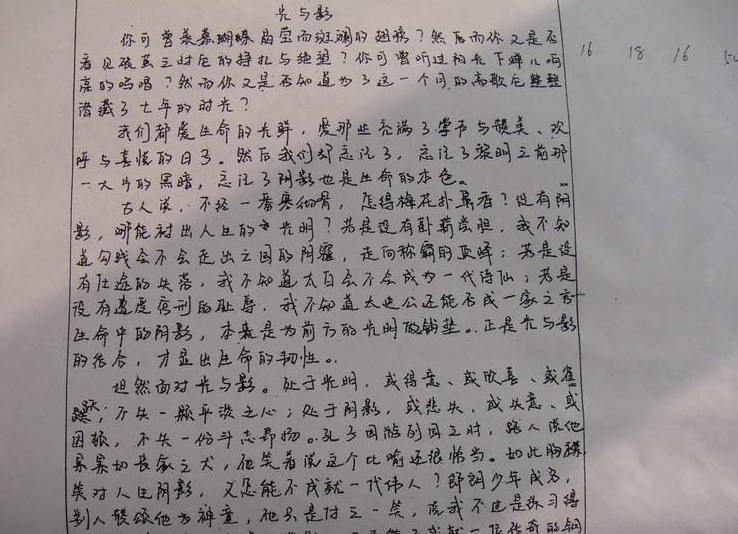 光与影
你可曾羡慕蝴蝶晶莹而斑斓的翅膀？然而你又是否
看见破茧之时它的挣扎与绝望？你可曾听过初光下蝉儿响
亮的鸣唱？然而你又是否知道为了这一个月的高歌它整整
潜藏了七年的时光？
我们都爱生命的光鲜，爱那些充满了掌声与赞美、欢
呼与喜悦的日子。然后我们却忘记了，忘记了黎明之前那
一大片的黑暗，忘记了阴影也是生命的本色。
古人说，不经一番寒彻骨，怎得梅花扑鼻香？没有阴
影，哪能衬出人生的光明？若是没有卧薪尝胆，我不知
道勾践会不会走出亡国的阴霾，走向称霸的巅峰；若是没
有仕途的失落，我不知道太白会不会成为一代诗仙；若是
没有遭度宫刑的耻辱，我不知道太史公还能否成一家之言…
生命中的阴影，本就是为前方的光明做铺垫。正是光与影
的结合，才显出生命的韧性。
坦然面对光与影。处于光明，或得意、或欣喜、或雀
跃，不失一颗平淡之心；处于阴影，或悲失、或失意、或
困顿，不失一份斗志昂扬。孔子周游列国之时，路人说他
累累如丧家之犬，他笑着说这个比喻还很恰当。如此胸襟
笑对人生阴影，又怎能不成就一代伟人？郎朗少年成名，
别人赞颂他为神童，他只是付之一笑，说我不过是练习得
16 18 16